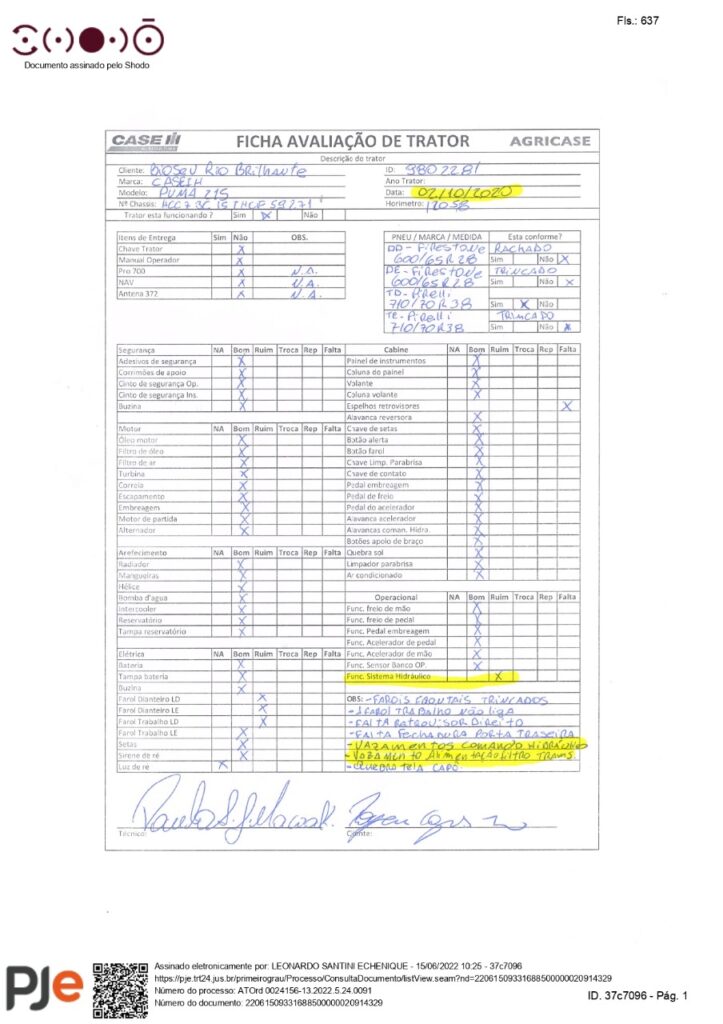 Fls.: 637
Documento assinado pelo Shodo
CASE IH FICHA AVALIAÇÃO DE TRATOR AGRICASE
Descrição do trator
Cliente: BIOSEV RIO BRILHANTE ID: 9802281
Marca: CASEIH Ano Trator:
Modelo: PUMA 215 Data: 02/10/2020
Nº Chassis: Horimetro: 12058
Trator esta funcionando ? Sim X Não
Itens de Entrega Sim Não OBS.
Chave Trator X
Manual Operador X
Pro 700 X N.A.
NAV X N.A.
Antena 372 X N.A.
PNEU / MARCA / MEDIDA Esta conforme?
DD - FIRESTONE RACHADO
600/65R28 Sim Não X
DE - FIRESTONE TRINCADO
600/65R28 Sim Não X
TD - Pirelli
710/70R38 Sim X Não
TE - Pirelli TRINCADO
710/70R38 Sim Não X
Segurança NA Bom Ruim Troca Rep Falta
Adesivos de segurança X
Corrimões de apoio X
Cinto de segurança Op. X
Cinto de segurança Ins. X
Buzina X
Motor NA Bom Ruim Troca Rep Falta
Óleo motor X
Filtro de óleo X
Filtro de ar X
Turbina X
Correia X
Escapamento X
Embreagem X
Motor de partida X
Alternador X
Arefecimento NA Bom Ruim Troca Rep Falta
Radiador X
Mangueiras X
Hélice X
Bomba d'agua X
Intercooler X
Reservatório X
Tampa reservatório X
Elétrica NA Bom Ruim Troca Rep Falta
Bateria X
Tampa bateria X
Buzina X
Farol Dianteiro LD X
Farol Dianteiro LE X
Farol Trabalho LD X
Farol Trabalho LE X
Setas X
Sirene de ré X
Luz de ré X
Cabine NA Bom Ruim Troca Rep Falta
Painel de instrumentos X
Coluna do painel X
Volante X
Coluna volante X
Espelhos retrovisores X
Alavanca reversora X
Chave de setas X
Botão alerta X
Botão farol X
Chave Limp. Parabrisa X
Chave de contato X
Pedal embreagem X
Pedal de freio X
Pedal do acelerador X
Alavanca acelerador X
Alavancas coman. Hidra. X
Botões apoio de braço X
Quebra sol X
Limpador parabrisa X
Ar condicionado X
Operacional NA Bom Ruim Troca Rep Falta
Func. freio de mão X
Func. freio de pedal X
Func. Pedal embreagem X
Func. Acelerador de pedal X
Func. Acelerador de mão X
Func. Sensor Banco OP. X
Func. Sistema Hidráulico X
OBS: - FAROIS FRONTAIS TRINCADOS
- 1 FAROL TRABALHO NÃO liga
- FALTA RETROVISOR DIREITO
- FALTA FECHADURA PORTA TRASEIRA
- VAZAMENTOS COMANDO HIDRÁULICO
- VAZAMENTO ALIMENTAÇÃO FILTRO TRANS.
- QUEBRA TELA CAPO
Técnico: Cliente:
PJe
Assinado eletronicamente por: LEONARDO SANTINI ECHENIQUE - 15/06/2022 10:25 - 37c7096
https://pje.trt24.jus.br/primeirograu/Processo/ConsultaDocumento/listView.seam?nd=22061509331688500000020914329
Número do processo: ATOrd 0024156-13.2022.5.24.0091
Número do documento: 22061509331688500000020914329
ID. 37c7096 - Pág. 1